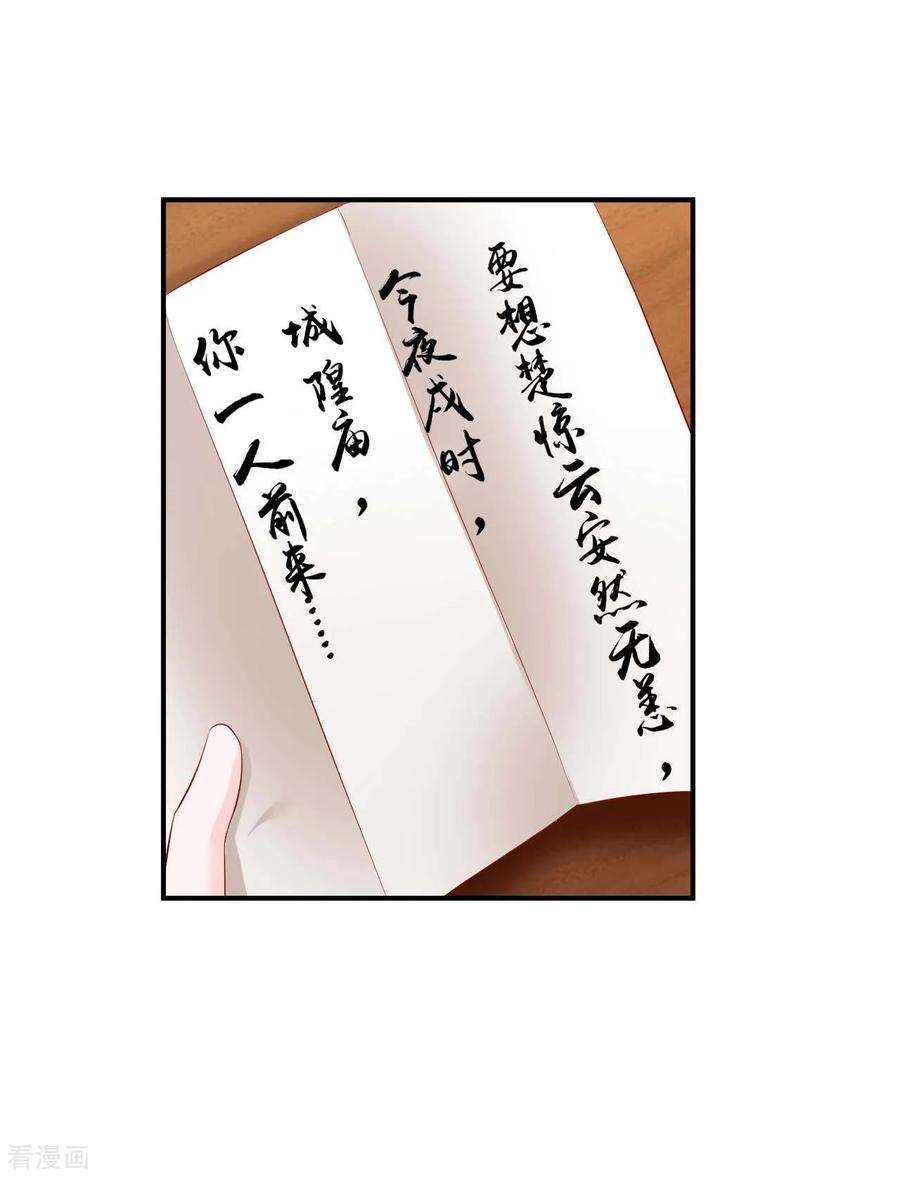 要想楚惊云安然无恙，
今夜戌时，
城隍庙，
你一人前来……
看漫画